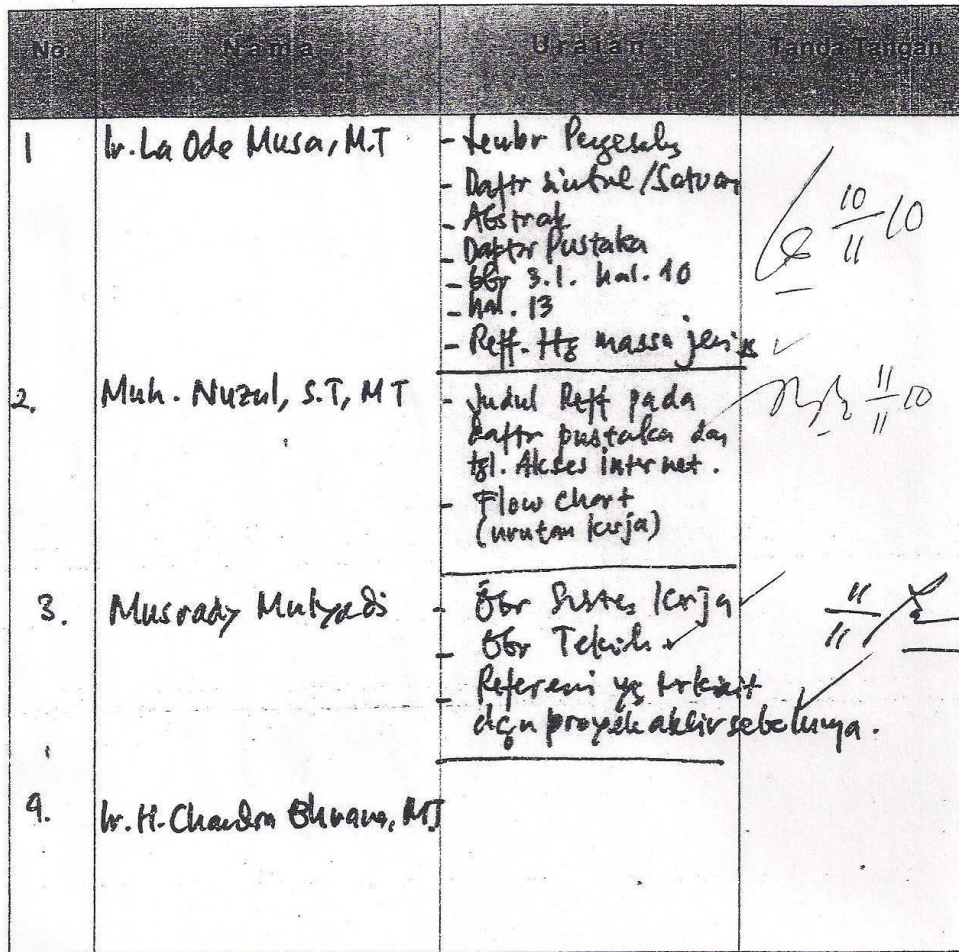 No. Nama Uraian Tanda Tangan
1 Ir. La Ode Musa, M.T
- Lembr Pengesahn
- Daftr simbol/Satuan
- Abstrak
- Daftar Pustaka
- Gbr 3.1. hal. 10
- hal. 13
- Reff. Hg massa jenis
10/11 10
2. Muh. Nuzul, S.T, MT
- Judul Reff pada
daftr pustaka dan
tgl. Akses internet.
- Flow chart
(urutan kerja)
11/11 10
3. Musrady Mulyadi
- Gbr Sistes kerja
- Gbr Teknik
- Referensi yg terkait
dgn proyek akhir sebelumya.
11/11
4. Ir. H. Chandra Bhuana, MT